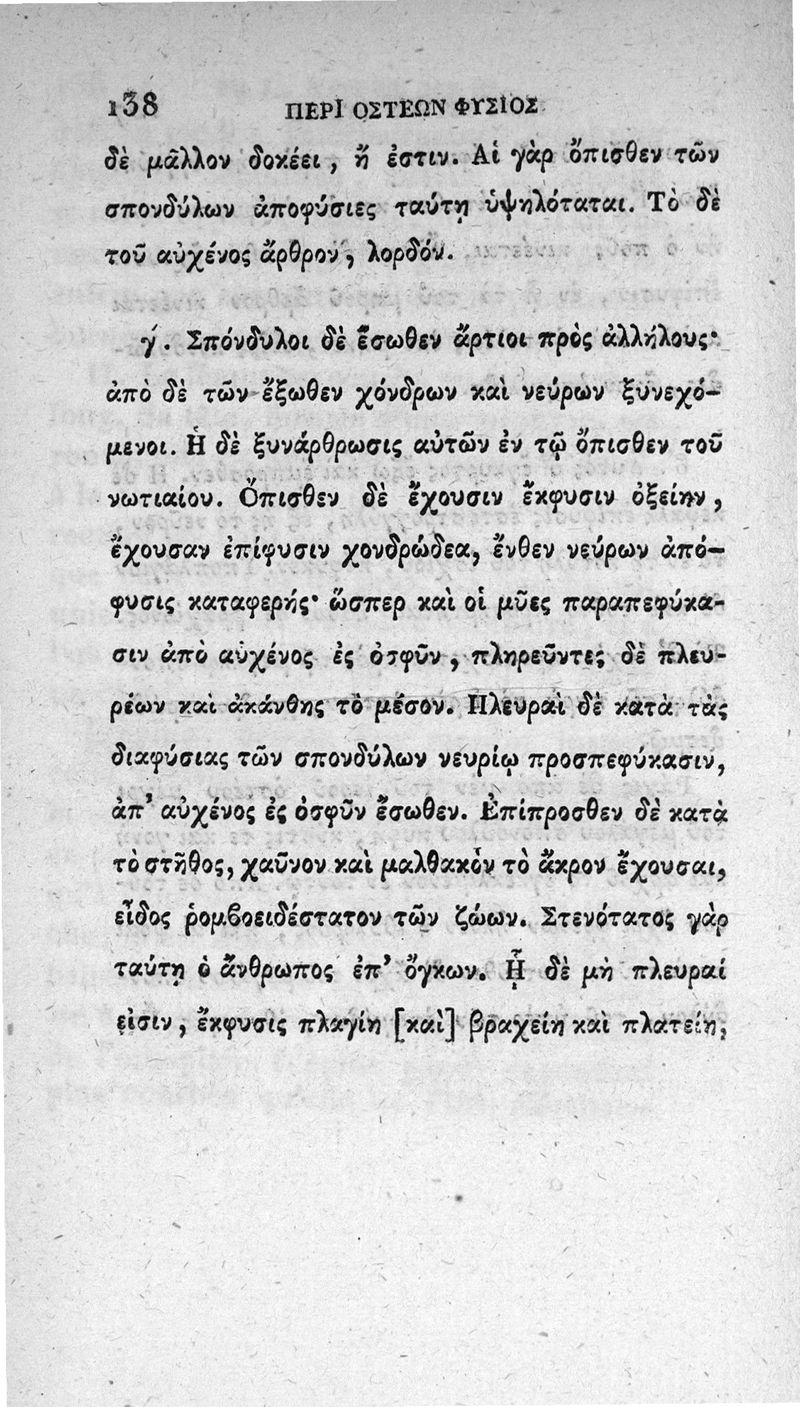 138 ΠΕΡΙ ΟΣΤΕΩΝ ΦΥΣΙΟΣ
δὲ μᾶλλον δοκέει, ἤ ἐστιν. Αἱ γὰρ ὄπισθεν τῶν
σπονδύλων ἀποφύσιες ταύτῃ ὑψηλόταται. Τὸ δὲ
τοῦ αὐχένος ἄρθρον, λορδόν.
γ. Σπόνδυλοι δὲ ἔσωθεν ἄρτιοι πρὸς ἀλλήλους·
ἀπὸ δὲ τῶν ἔξωθεν χόνδρων καὶ νεύρων ξυνεχό-
μενοι. Ἡ δὲ ξυνάρθρωσις αὐτῶν ἐν τῷ ὄπισθεν τοῦ
νωτιαίου. Ὄπισθεν δὲ ἔχουσιν ἔκφυσιν ὀξείην,
ἔχουσαν ἐπίφυσιν χονδρώδεα, ἔνθεν νεύρων ἀπό-
φυσις καταφερής· ὥσπερ καὶ οἱ μῦες παραπεφύκα-
σιν ἀπὸ αὐχένος ἐς ὀσφῦν, πληρεῦντες δὲ πλευ-
ρέων καὶ ἀκάνθης τὸ μέσον. Πλευραὶ δὲ κατὰ τὰς
διαφύσιας τῶν σπονδύλων νευρίῳ προσπεφύκασιν,
ἀπ’ αὐχένος ἐς ὀσφῦν ἔσωθεν. Ἐπίπροσθεν δὲ κατὰ
τὸ στῆθος, χαῦνον καὶ μαλθακὸν τὸ ἄκρον ἔχουσαι,
εἶδος ῥομβοειδέστατον τῶν ζώων. Στενότατος γὰρ
ταύτῃ ὁ ἄνθρωπος ἐπ’ ὄγκων. ᾟ δὲ μὴ πλευραί
εἰσιν, ἔκφυσις πλαγίη [καὶ] βραχείη καὶ πλατείη,